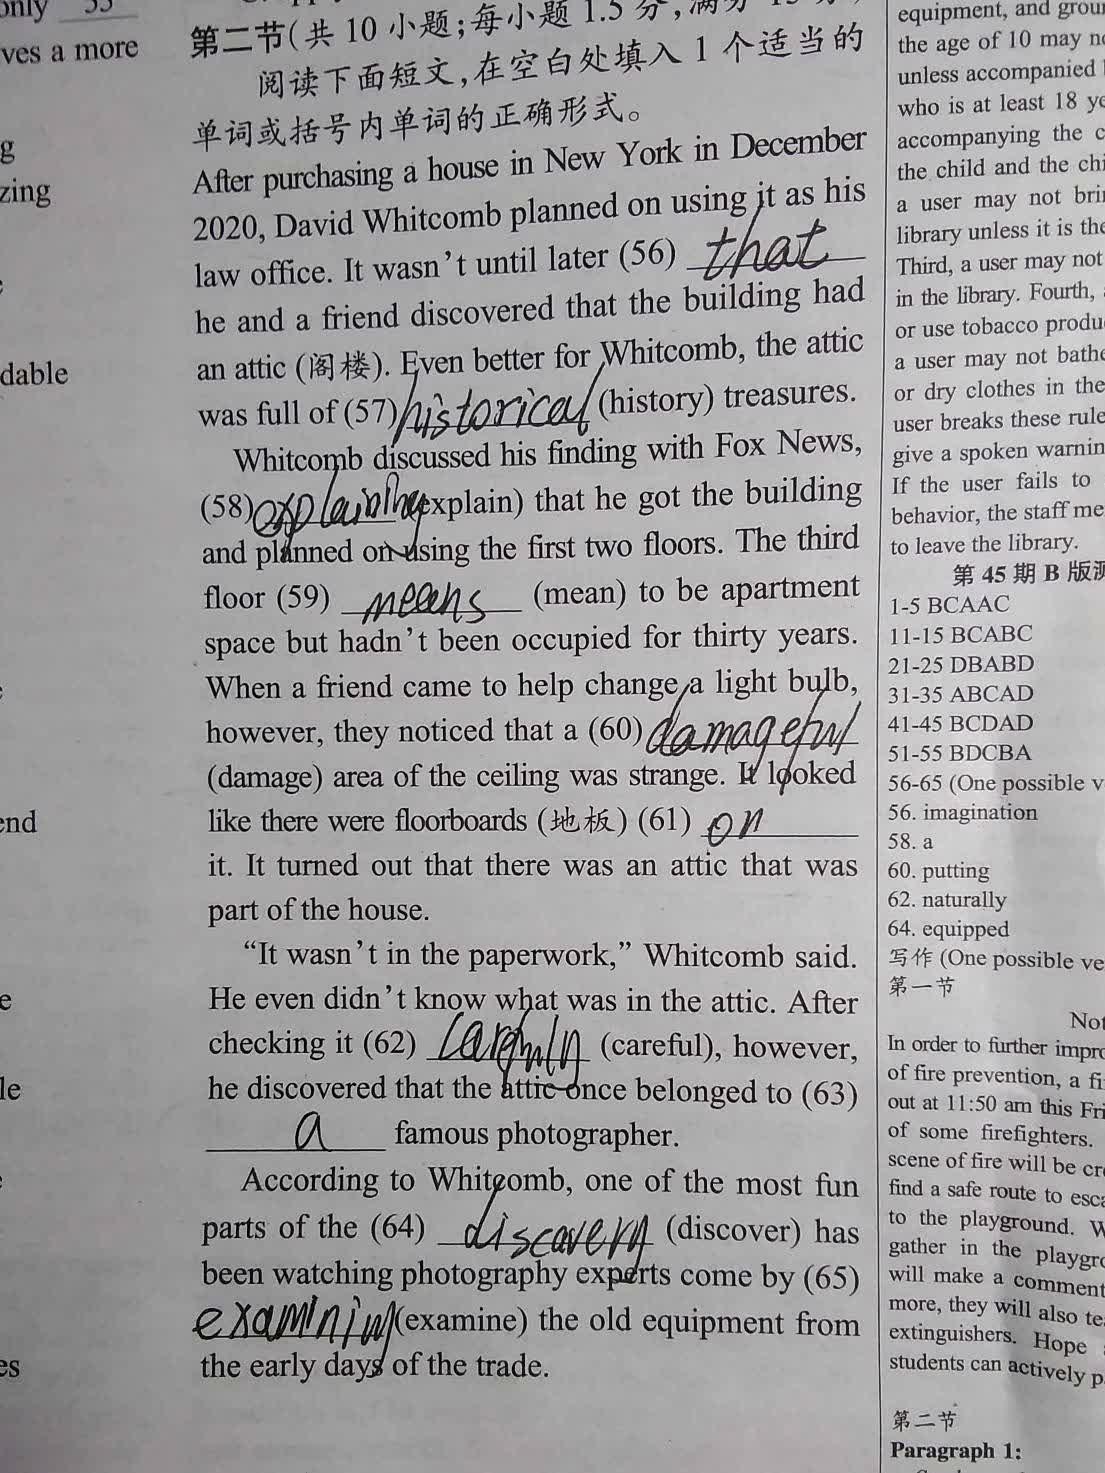 only 55
ves a more
g
zing
dable
end
e
le
es
第二节(共 10 小题;每小题 1.5 分,满分 15 分)
阅读下面短文,在空白处填入 1 个适当的
单词或括号内单词的正确形式。
After purchasing a house in New York in December
2020, David Whitcomb planned on using it as his
law office. It wasn't until later (56) that
he and a friend discovered that the building had
an attic (阁楼). Even better for Whitcomb, the attic
was full of (57) historical (history) treasures.
Whitcomb discussed his finding with Fox News,
(58) explaining (explain) that he got the building
and planned on using the first two floors. The third
floor (59) means (mean) to be apartment
space but hadn't been occupied for thirty years.
When a friend came to help change a light bulb,
however, they noticed that a (60) damageful
(damage) area of the ceiling was strange. It looked
like there were floorboards (地板) (61) on
it. It turned out that there was an attic that was
part of the house.
"It wasn't in the paperwork," Whitcomb said.
He even didn't know what was in the attic. After
checking it (62) carefully (careful), however,
he discovered that the attic once belonged to (63)
a famous photographer.
According to Whitcomb, one of the most fun
parts of the (64) discovery (discover) has
been watching photography experts come by (65)
examining (examine) the old equipment from
the early days of the trade.
equipment, and grou
the age of 10 may n
unless accompanied
who is at least 18 ye
accompanying the c
the child and the chi
a user may not bri
library unless it is the
Third, a user may not
in the library. Fourth,
or use tobacco produ
a user may not bathe
or dry clothes in the
user breaks these rule
give a spoken warnin
If the user fails to
behavior, the staff me
to leave the library.
第 45 期 B 版测
1-5 BCAAC
11-15 BCABC
21-25 DBABD
31-35 ABCAD
41-45 BCDAD
51-55 BDCBA
56-65 (One possible v
56. imagination
58. a
60. putting
62. naturally
64. equipped
写作 (One possible ve
第一节
Not
In order to further impro
of fire prevention, a fi
out at 11:50 am this Fri
of some firefighters.
scene of fire will be cre
find a safe route to esca
to the playground. W
gather in the playgro
will make a comment
more, they will also te
extinguishers. Hope
students can actively p
第二节
Paragraph 1: